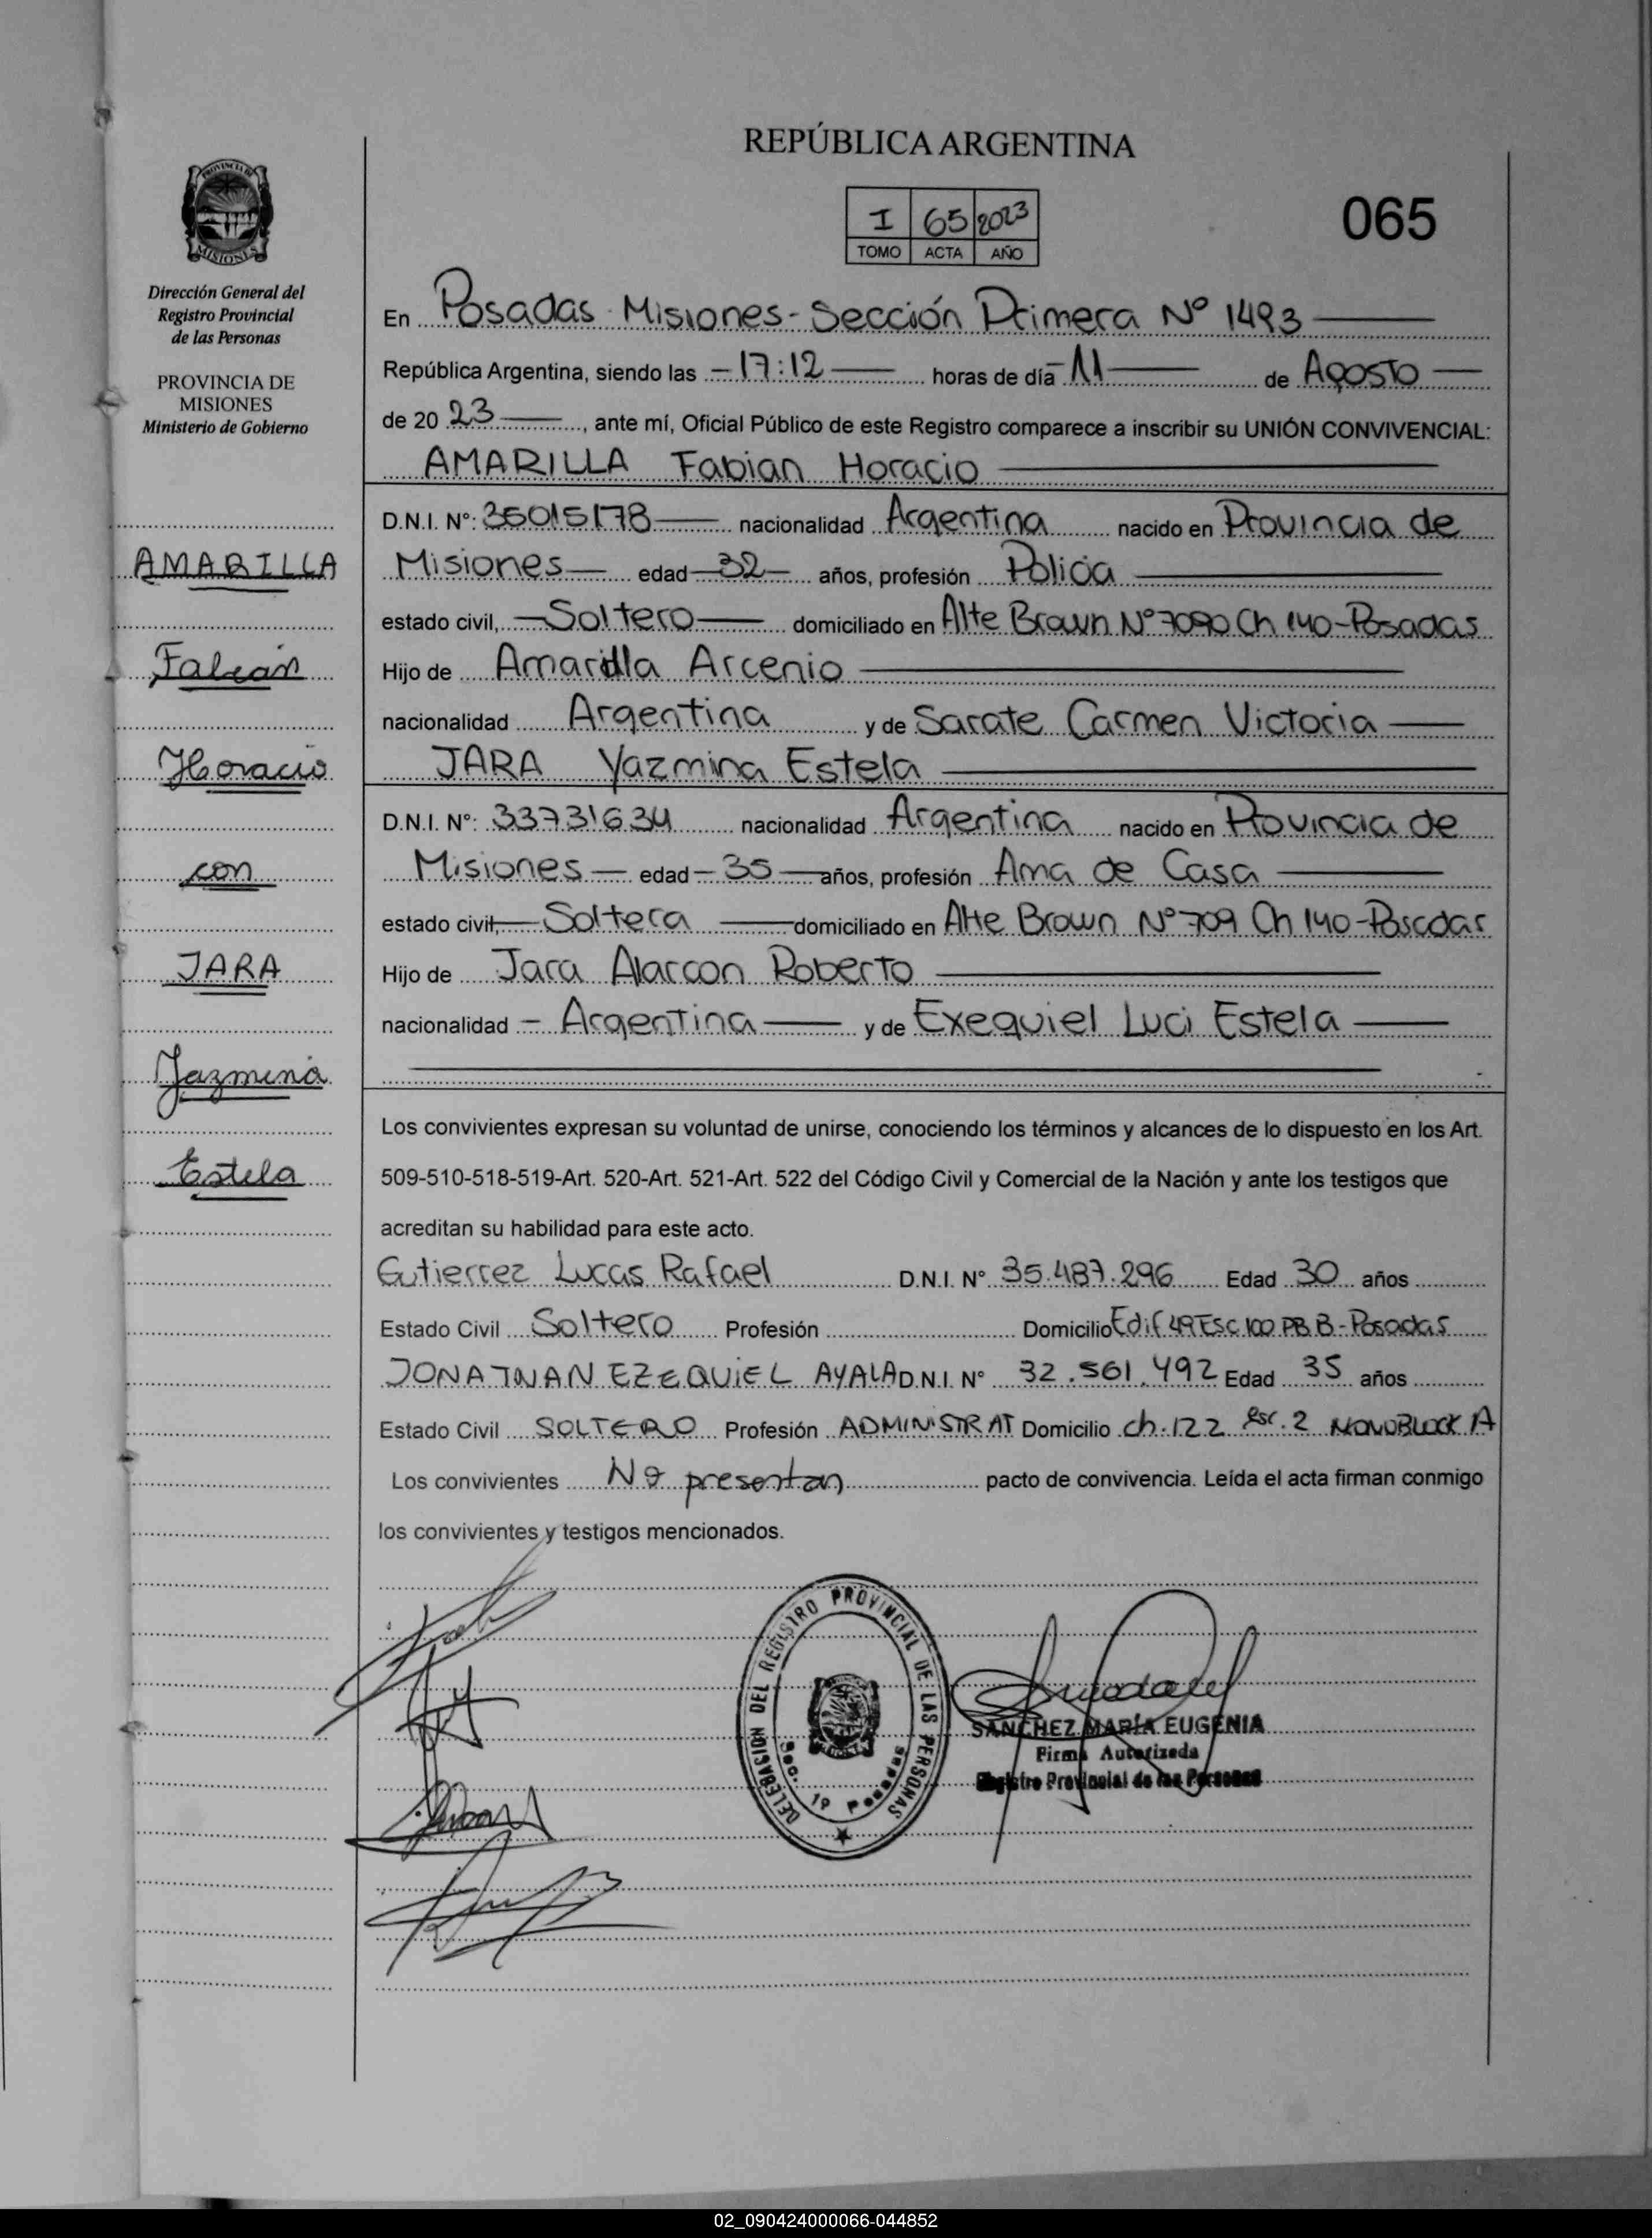 REPÚBLICA ARGENTINA
I 65 2023
TOMO ACTA AÑO
065
PROVINCIA DE
MISIONES
Dirección General del
Registro Provincial
de las Personas
PROVINCIA DE
MISIONES
Ministerio de Gobierno
AMARILLA
Fabián
Horacio
con
JARA
Yazmina
Estela
En Posadas Misiones - Sección Primera Nº 1493
República Argentina, siendo las 17:12 horas de día 11 de Agosto
de 20 23, ante mí, Oficial Público de este Registro comparece a inscribir su UNIÓN CONVIVENCIAL:
AMARILLA Fabian Horacio
D.N.I. Nº: 35015178 nacionalidad Argentina nacido en Provincia de
Misiones edad 32 años, profesión Policia
estado civil, Soltero domiciliado en Alte Brown Nº 7090 Ch 140-Posadas
Hijo de Amarilla Arcenio
nacionalidad Argentina y de Sarate Carmen Victoria
JARA Yazmina Estela
D.N.I. Nº: 33731634 nacionalidad Argentina nacido en Provincia de
Misiones edad 35 años, profesión Ama de Casa
estado civil, Soltera domiciliado en Alte Brown Nº 709 Ch 140-Posadas
Hijo de Jara Alarcon Roberto
nacionalidad Argentina y de Exequiel Luci Estela
Los convivientes expresan su voluntad de unirse, conociendo los términos y alcances de lo dispuesto en los Art.
509-510-518-519-Art. 520-Art. 521-Art. 522 del Código Civil y Comercial de la Nación y ante los testigos que
acreditan su habilidad para este acto.
Gutierrez Lucas Rafael D.N.I. Nº 35.487.296 Edad 30 años
Estado Civil Soltero Profesión Domicilio Edif 49 Esc 100 PB B - Posadas
JONATHAN EZEQUIEL AYALA D.N.I. Nº 32.561.492 Edad 35 años
Estado Civil SOLTERO Profesión ADMINISTRAT Domicilio ch. 122 esc. 2 MONOBLOCK A
Los convivientes No presentan pacto de convivencia. Leída el acta firman conmigo
los convivientes y testigos mencionados.
DELEGASION DEL REGISTRO PROVINCIAL DE LAS PERSONAS
Sec. 1º Posadas
SANCHEZ MARÍA EUGENIA
Firma Autorizada
Registro Provincial de las Personas
02_090424000066-044852